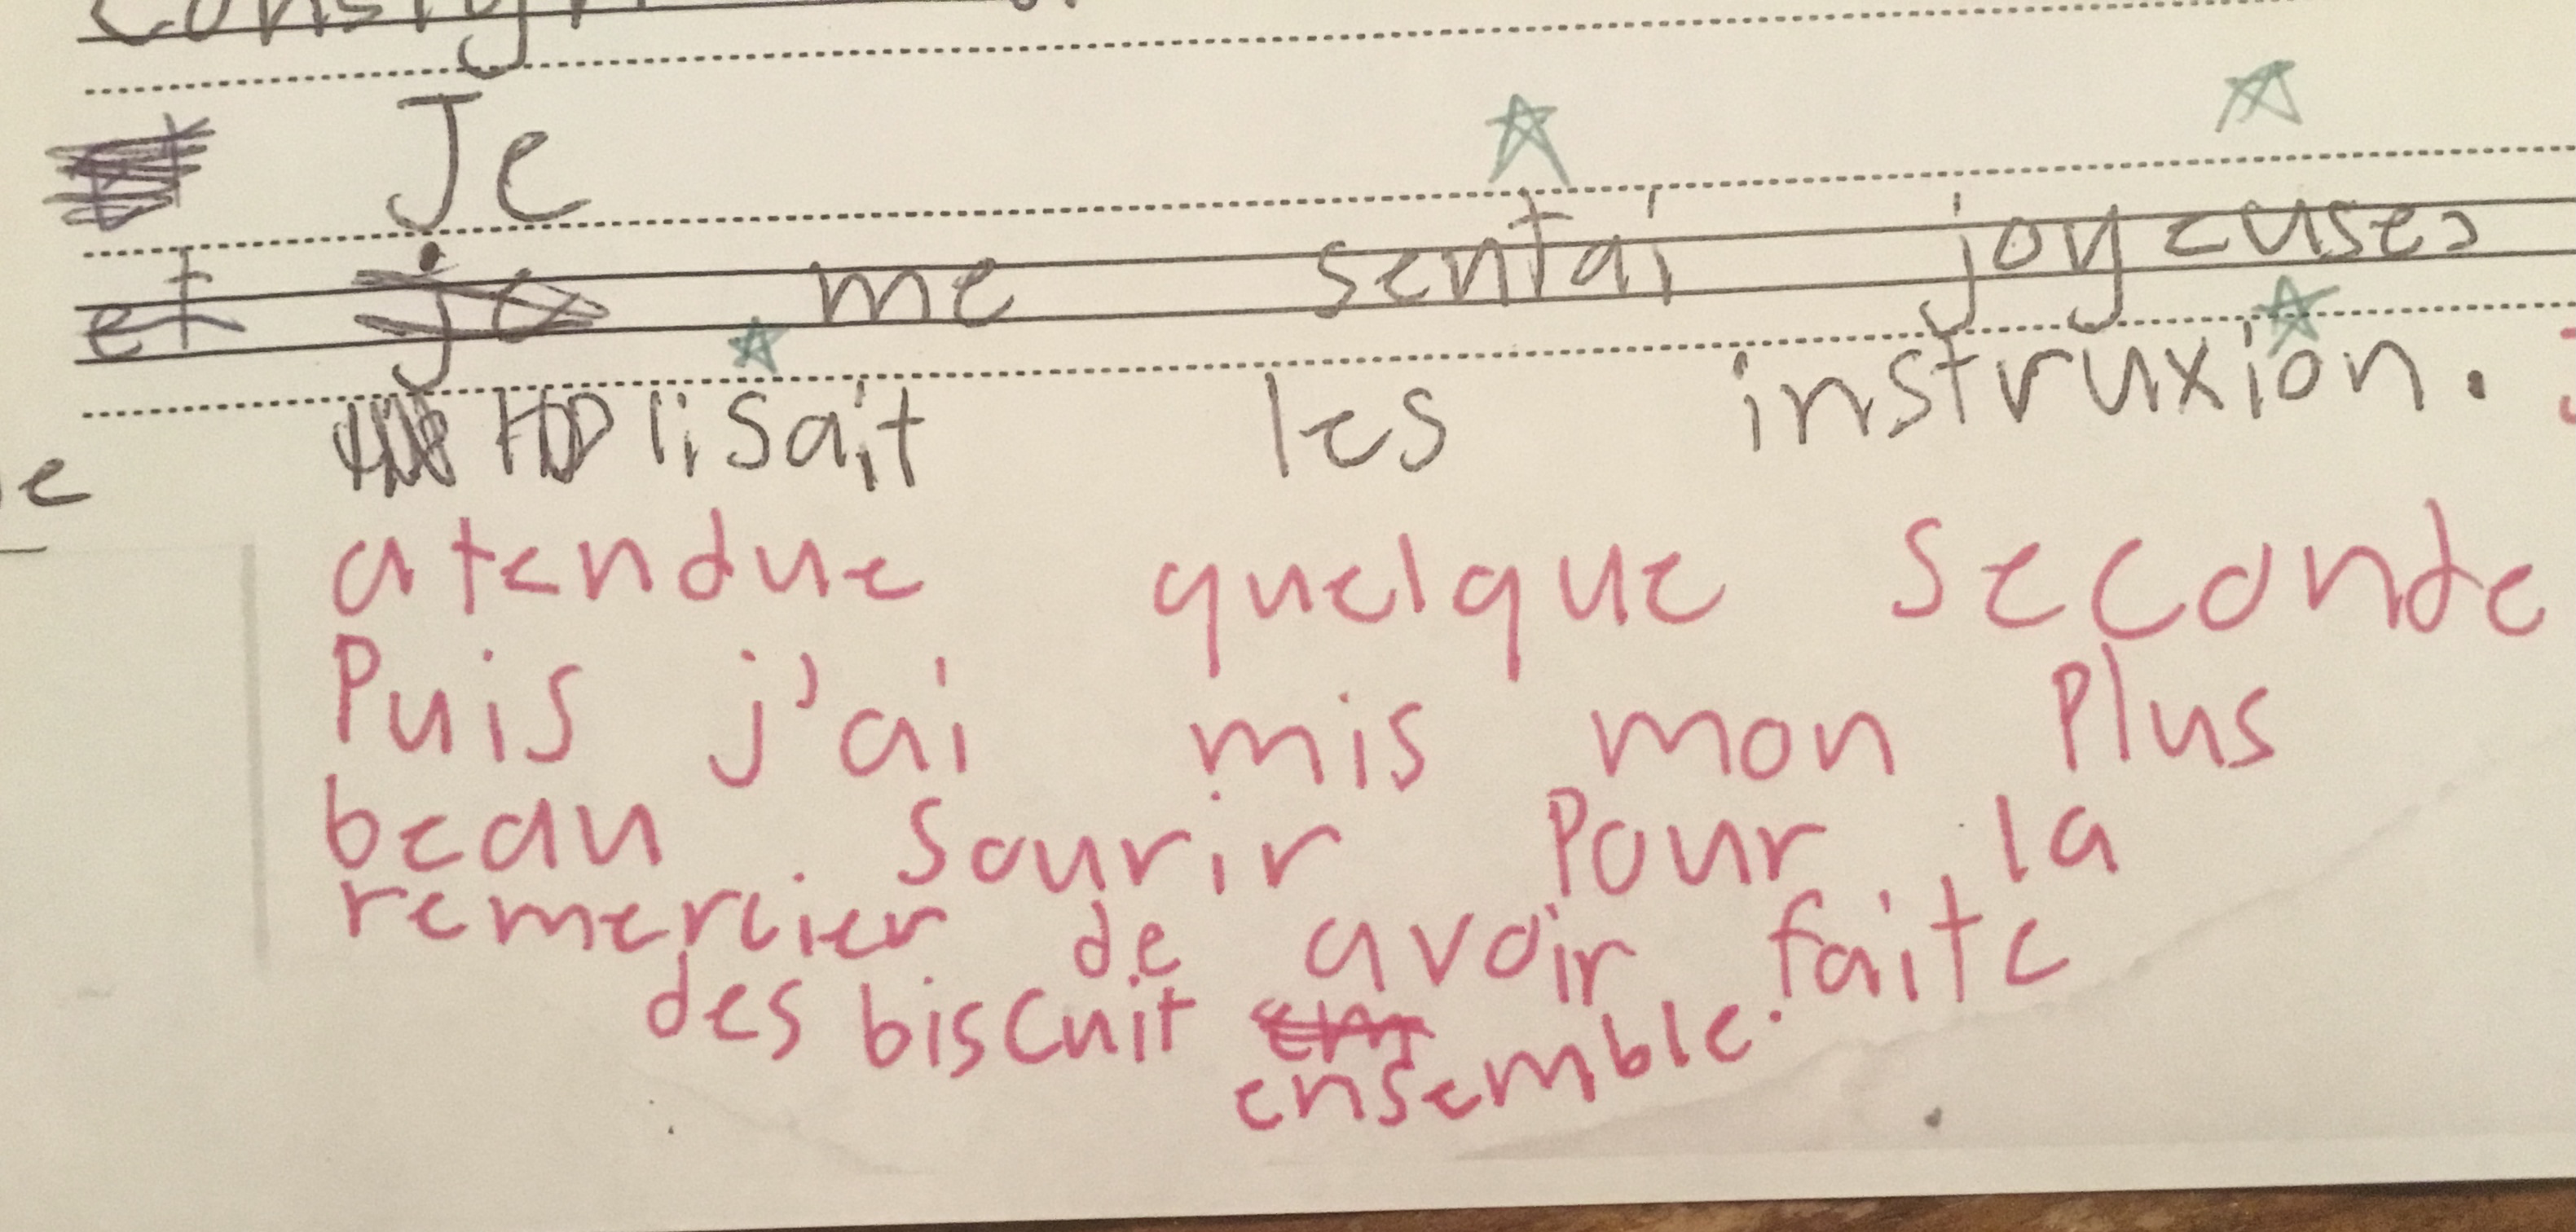 Je
et je me sentai joyeuses
lisait les instruxion.
e
atendue quelque seconde
Puis j'ai mis mon plus
beau sourir pour la
remercier de avoir faite
des biscuit
ensemble.